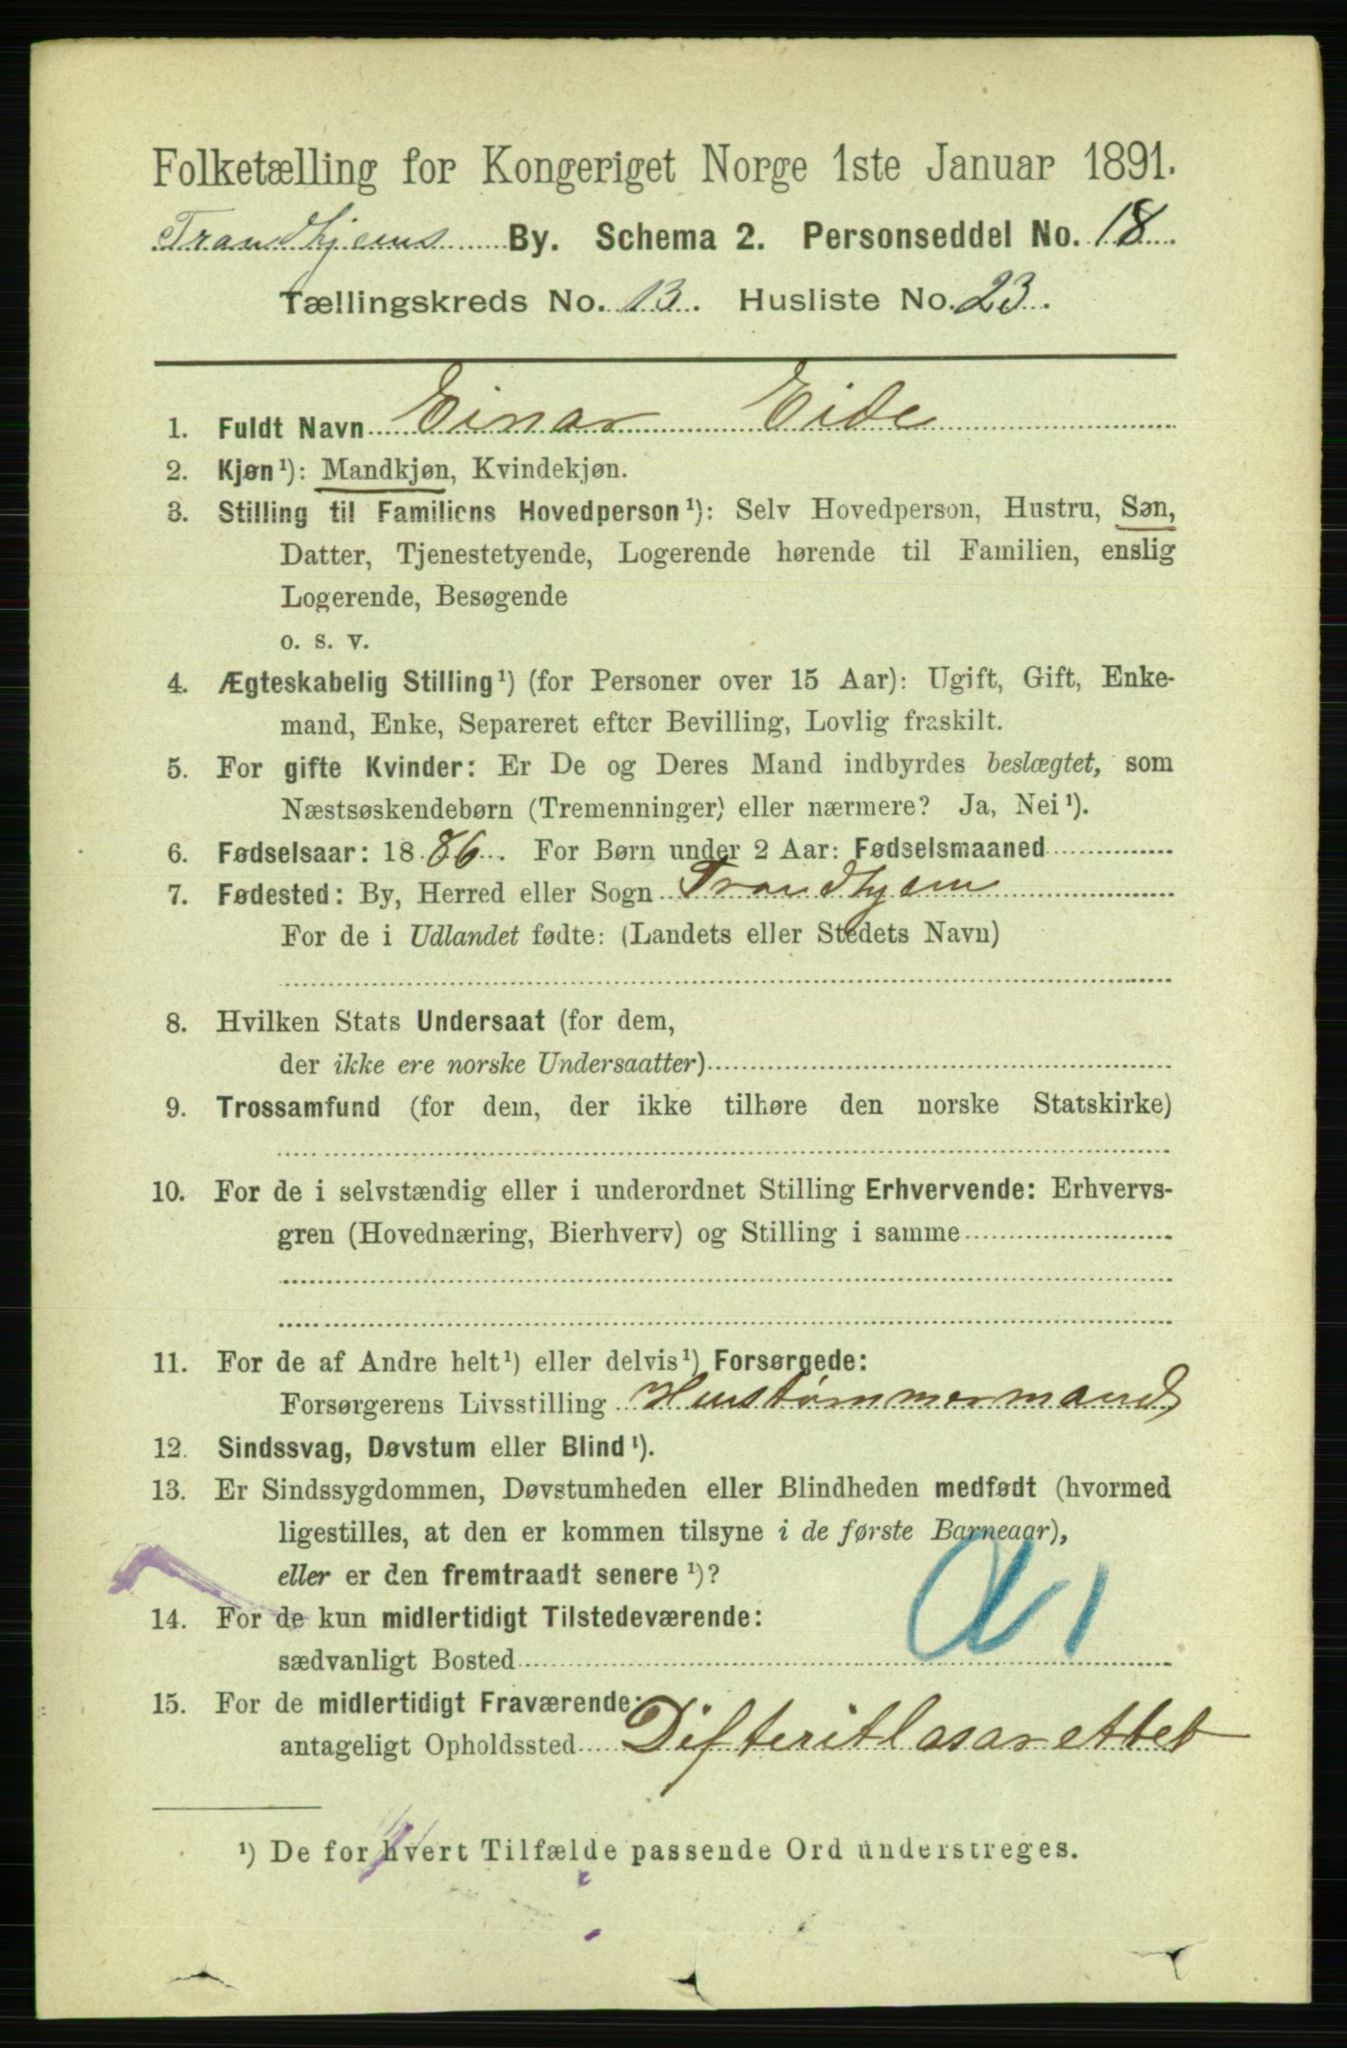 Folketælling for Kongeriget Norge 1ste Januar 1891.
Trondhjems By. Schema 2. Personseddel No. 18
Tællingskreds No. 13. Husliste No. 23.
1. Fuldt Navn Einar Eide
2. Kjøn¹): Mandkjøn, Kvindekjøn.
3. Stilling til Familiens Hovedperson¹): Selv Hovedperson, Hustru, Søn,
Datter, Tjenestetyende, Logerende hørende til Familien, enslig
Logerende, Besøgende
o. s. v.
4. Ægteskabelig Stilling¹) (for Personer over 15 Aar): Ugift, Gift, Enke-
mand, Enke, Separeret efter Bevilling, Lovlig fraskilt.
5. For gifte Kvinder: Er De og Deres Mand indbyrdes beslægtet, som
Næstsøskendebørn (Tremenninger) eller nærmere? Ja, Nei¹).
6. Fødselsaar: 1886. For Børn under 2 Aar: Fødselsmaaned
7. Fødested: By, Herred eller Sogn Trondhjem
For de i Udlandet fødte: (Landets eller Stedets Navn)
8. Hvilken Stats Undersaat (for dem,
der ikke ere norske Undersaatter)
9. Trossamfund (for dem, der ikke tilhøre den norske Statskirke)
10. For de i selvstændig eller i underordnet Stilling Erhvervende: Erhvervs-
gren (Hovednæring, Bierhverv) og Stilling i samme
11. For de af Andre helt¹) eller delvis¹) Forsørgede:
Forsørgerens Livsstilling Hustømmermand
12. Sindssvag, Døvstum eller Blind¹).
13. Er Sindssygdommen, Døvstumheden eller Blindheden medfødt (hvormed
ligestilles, at den er kommen tilsyne i de første Barneaar),
eller er den fremtraadt senere¹)?
14. For de kun midlertidigt Tilstedeværende:
sædvanligt Bosted
15. For de midlertidigt Fraværende:
antageligt Opholdssted Difteritlasarettet
¹) De for hvert Tilfælde passende Ord understreges.